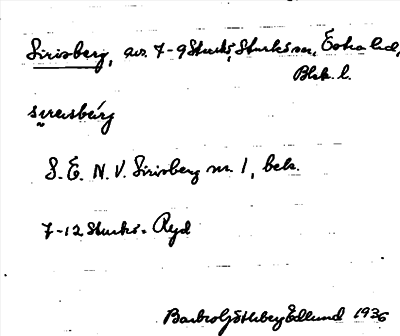 Sirisberg, av. 7-9 Sturkö, Sturkö sn, Östra hd,
Blek. l.
S. E. N. V. Sirisberg nr. 1, bek.
7-12 Sturkö - Ryd
Barbro Götheberg Edlund 1936